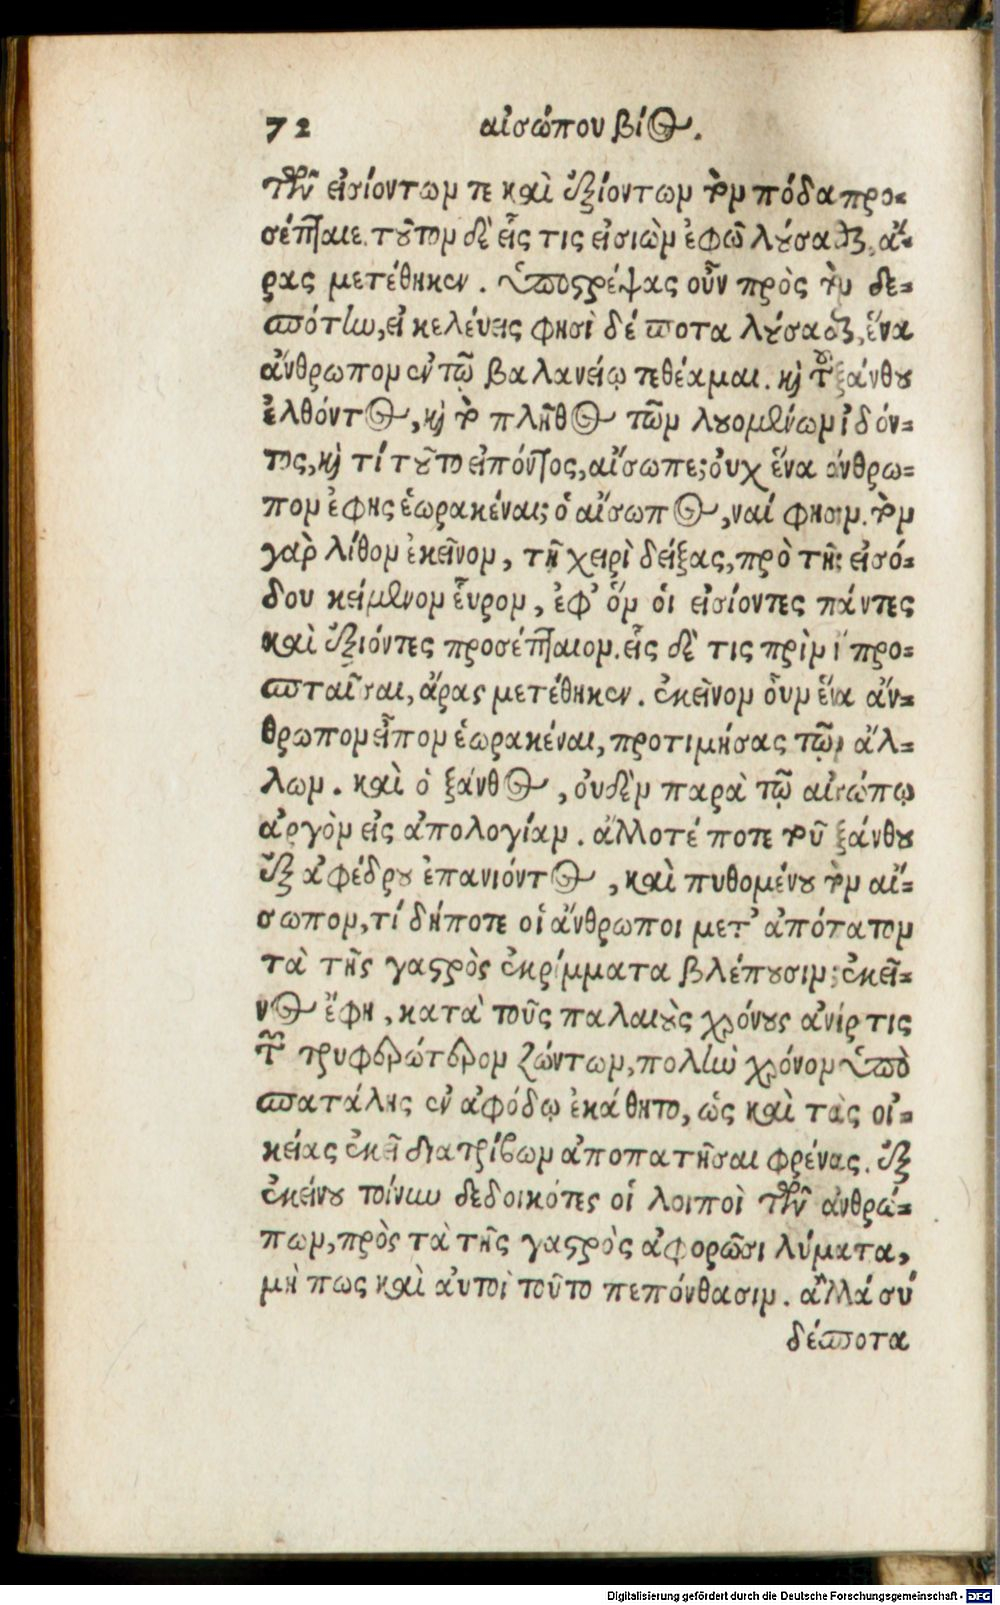 72 αἰσώπου βίος.
τῶν εἰσίοντων τε καὶ ἐξίοντων τὸν πόδα προ-
σέπταιε. τοῦτον δὲ εἷς τις εἰσιὼν ἐφῶ λούσασθαι, ἄ-
ρας μετέθηκεν. ὑποστρέψας οὖν πρὸς τὸν δε-
σπότην, εἰ κελέυεις φησὶ δέσποτα λούσασθαι, ἕνα
ἄνθρωπον ἐν τῷ βαλανείῳ τεθέαμαι. καὶ τοῦ ξάνθου
ἐλθόντος, καὶ τὸ πλῆθος τῶν λουομένων ἰδόν-
τος, καὶ τί τοῦτο εἰπόντος, αἴσωπε; οὐχ ἕνα ἄνθρω-
πον ἔφης ἑωρακέναι; ὁ αἴσωπος, ναί φησιν. τὸν
γαρ λίθον ἐκεῖνον, τῇ χειρὶ δείξας, πρὸ τῆς εἰσό-
δου κείμενον εὗρον, ἐφ' ὃν οἱ εἰσίοντες πάντες
καὶ ἐξιόντες προσέπταιον. εἷς δέ τις πρὶν ἢ προ-
σπταῖσαι, ἄρας μετέθηκεν. ἐκεῖνον οὖν ἕνα ἄν-
θρωπον εἶπον ἑωρακέναι, προτιμήσας τῶν ἄλ-
λων. καὶ ὁ ξάνθος, οὐδὲν παρὰ τῷ αἰσώπῳ
ἀργὸν εἰς ἀπολογίαν. ἄλλοτέ ποτε τοῦ ξάνθου
ἐξ ἀφέδρου ἐπανιόντος, καὶ πυθομένου τὸν αἴ-
σωπον, τί δήποτε οἱ ἄνθρωποι μετ' ἀπότατον
τὰ τῆς γαστρὸς ἐκρίμματα βλέπουσιν; ἐκεῖ-
νος ἔφη, κατὰ τοῦς παλαιοὺς χρόνους ἀνήρ τις
τῶν τρυφερώτερον ζώντων, πολὺν χρόνον ὑπὸ
σπατάλης ἐν ἀφόδῳ ἐκάθητο, ὡς καὶ τὰς οἰ-
κείας ἐκεῖ διατρίβων ἀποπατῆσαι φρένας. ἐξ
ἐκείνου τοίνυν δεδοικότες οἱ λοιποὶ τῶν ἀνθρώ-
πων, πρὸς τὰ τῆς γαστρὸς ἀφορῶσι λύματα,
μή πως καὶ ἀυτοὶ τοῦτο πεπόνθασιν. ἀλλὰ σύ
δέσποτα
Digitalisierung gefördert durch die Deutsche Forschungsgemeinschaft - DFG